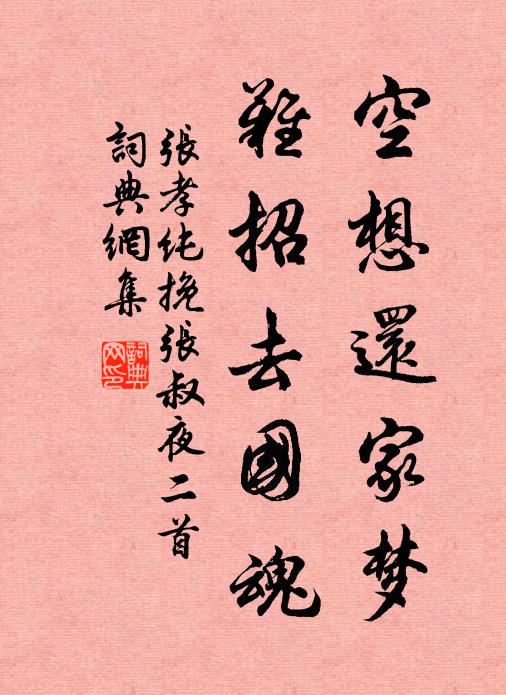 空想還家梦
難招去國魂
張孝纯挽張叔夜二首
詞典網集
詞典
网印